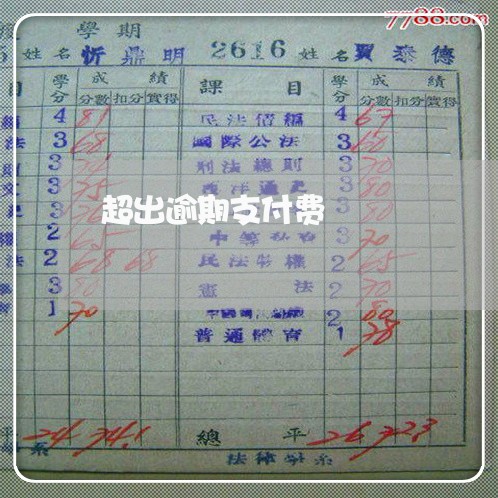 7788.com
學期
5 姓名 忻鼎明 2616 姓名 賈泰德
目 學分 成績 課目 學分 成績
分數 扣分 實得 分數 扣分 實得
4 81 民法債編 4 67
法 3 68 國際公法 3 60
3 刑法總則 3 70
3 75 西洋通史 3 80
超出逾期支付费
3 80
2 65 3 70
法 2 68 68 民法物權 2 65
3 80 憲法 2 70
1 70 2 80
普通體育 1 78
平 24 74.1 總平 26 72.3
系 法律學系